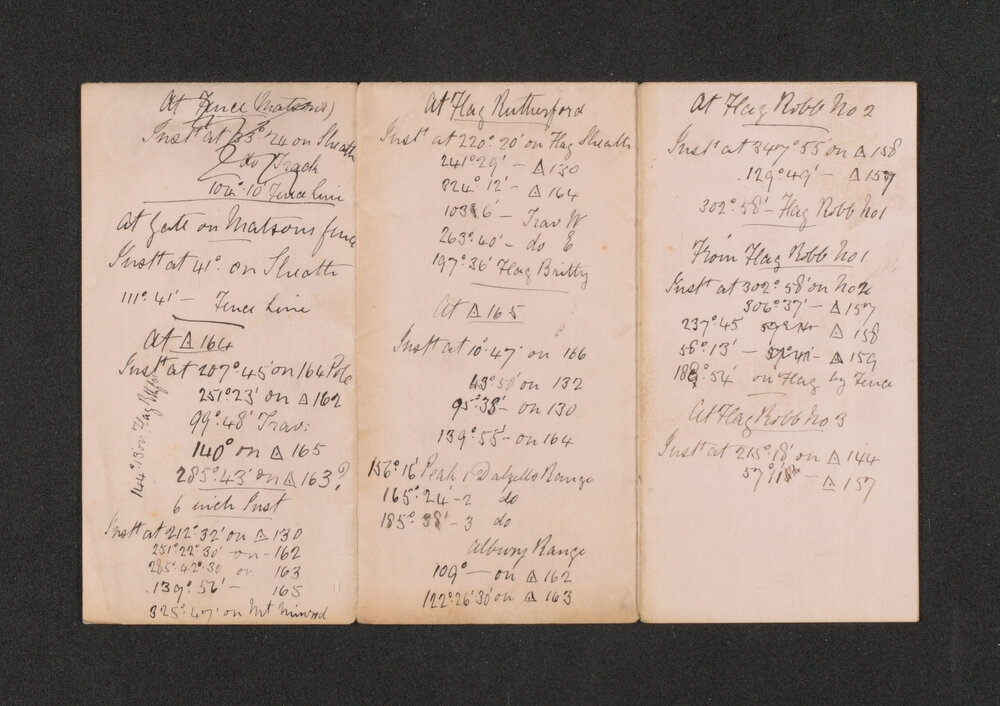 At Fence (Matsons)
Instt at 33°.24 on Sheath
do Track
104°.10' Fence Line
At Gate on Matsons fence
Instt at 41°. on Sheath
111°.41' — Fence Line
At △ 164
Instt at 207°.45' on 164 Pole
251°.23' on △ 162
99°.48' Trav:
140° on △ 165
285°.43' on △ 163?
6 inch Inst
Instt at 212°.32' on △ 130
251°.22'.30' on - 162
285°.42'.30 on 163
139°.56' — 165
325°.47' on Mt
144°.13 on Flag
At Flag Rutherford
Instt at 220°.20' on Flag Sheath
241°.29' — △ 130
824°.12' — △ 164
103 6' — Trav W
263°.40' — do E
197°.36' Flag Britty
At △ 165
Instt at 10°.47' on 166
43°.50' on 132
95°.38' — on 130
139°.55' — on 164
156°.16' Peak 1 Dalzells Range
165°.24' - 2 do
185°.38' - 3 do
Albury Range
109° — on △ 162
122°.26'.30' on △ 163
At Flag Robb No 2
Instt at 347°.55' on △ 158
129°.49' — △ 157
302°.58' — Flag Robb No 1
From Flag Robb No 1
Instt at 302°.58' on No 2
306°.37' — △ 157
237°.45 △ 158
58°.13' — △ 159
189°.54' on Flag by Fence
At Flag Robb No 3
Instt at 215°.18' on △ 144
57° — △ 157